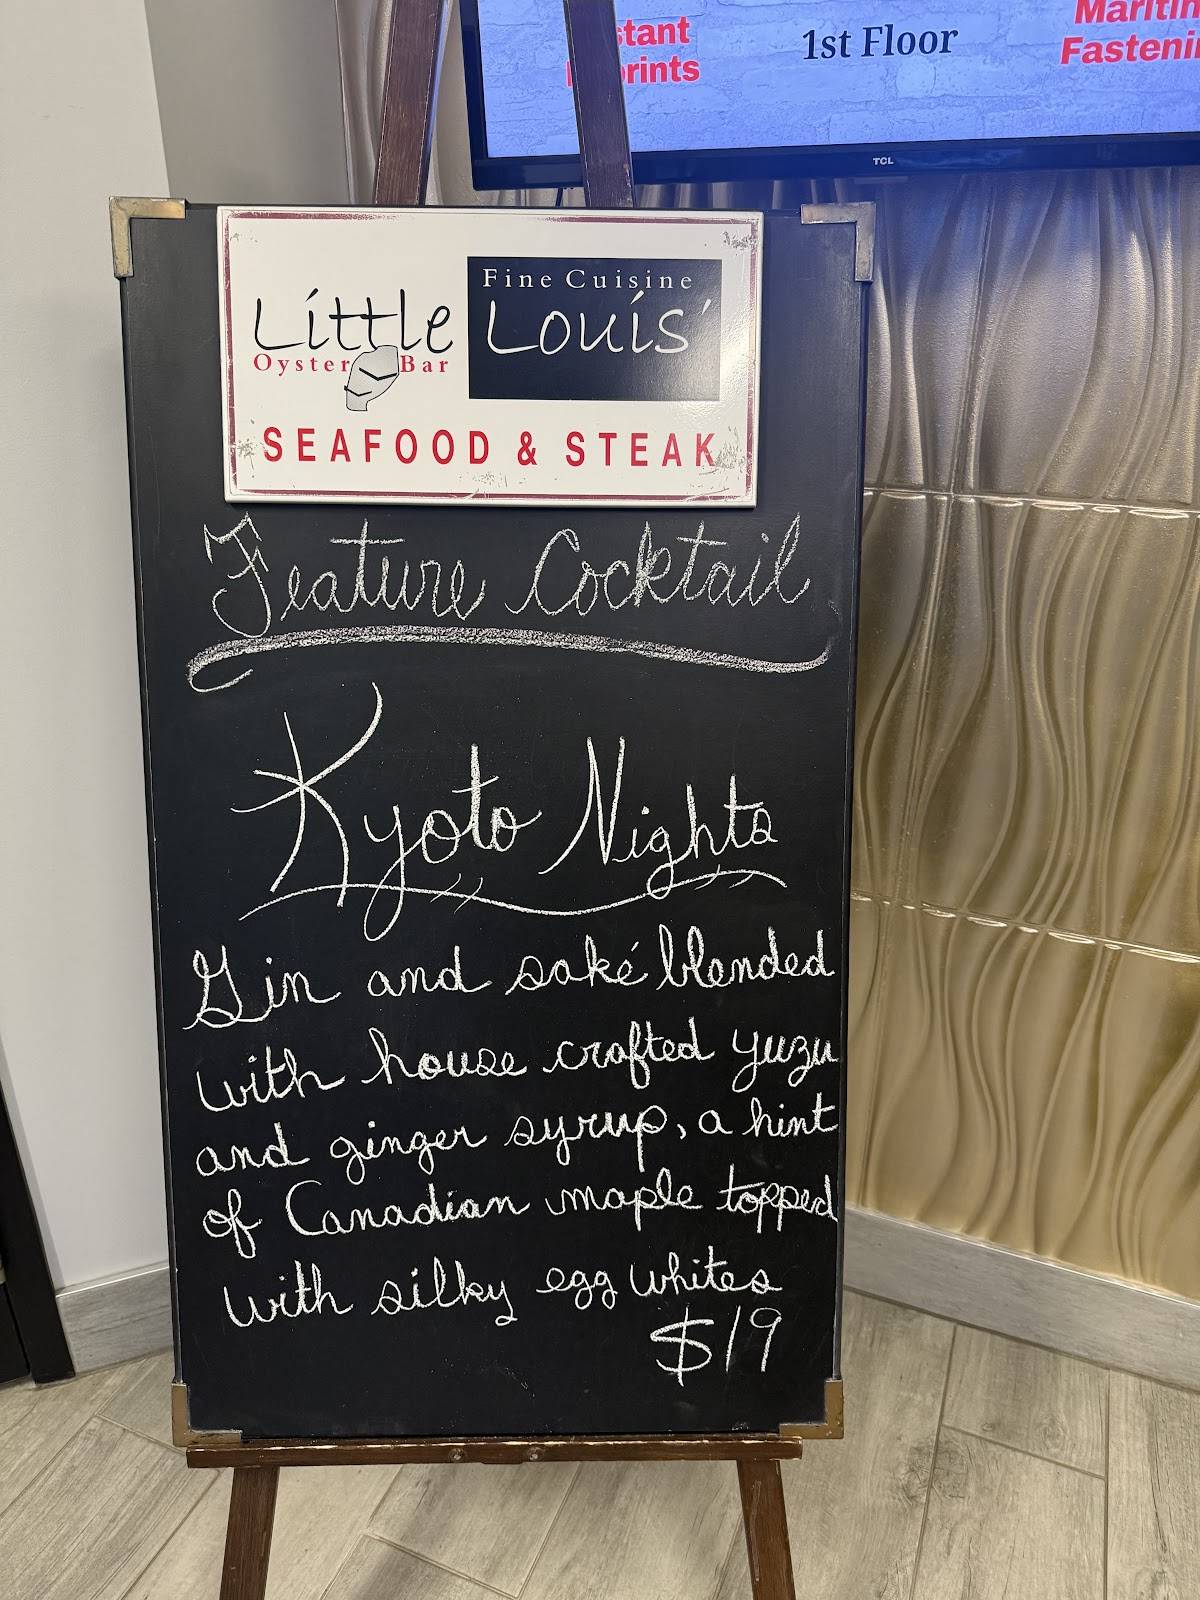 1st Floor
TCL
Fine Cuisine
Little Louis'
Oyster Bar
SEAFOOD & STEAK
Feature Cocktail
Kyoto Nights
Gin and saké blended
with house crafted yuzu
and ginger syrup, a hint
of Canadian maple topped
with silky egg whites
$19